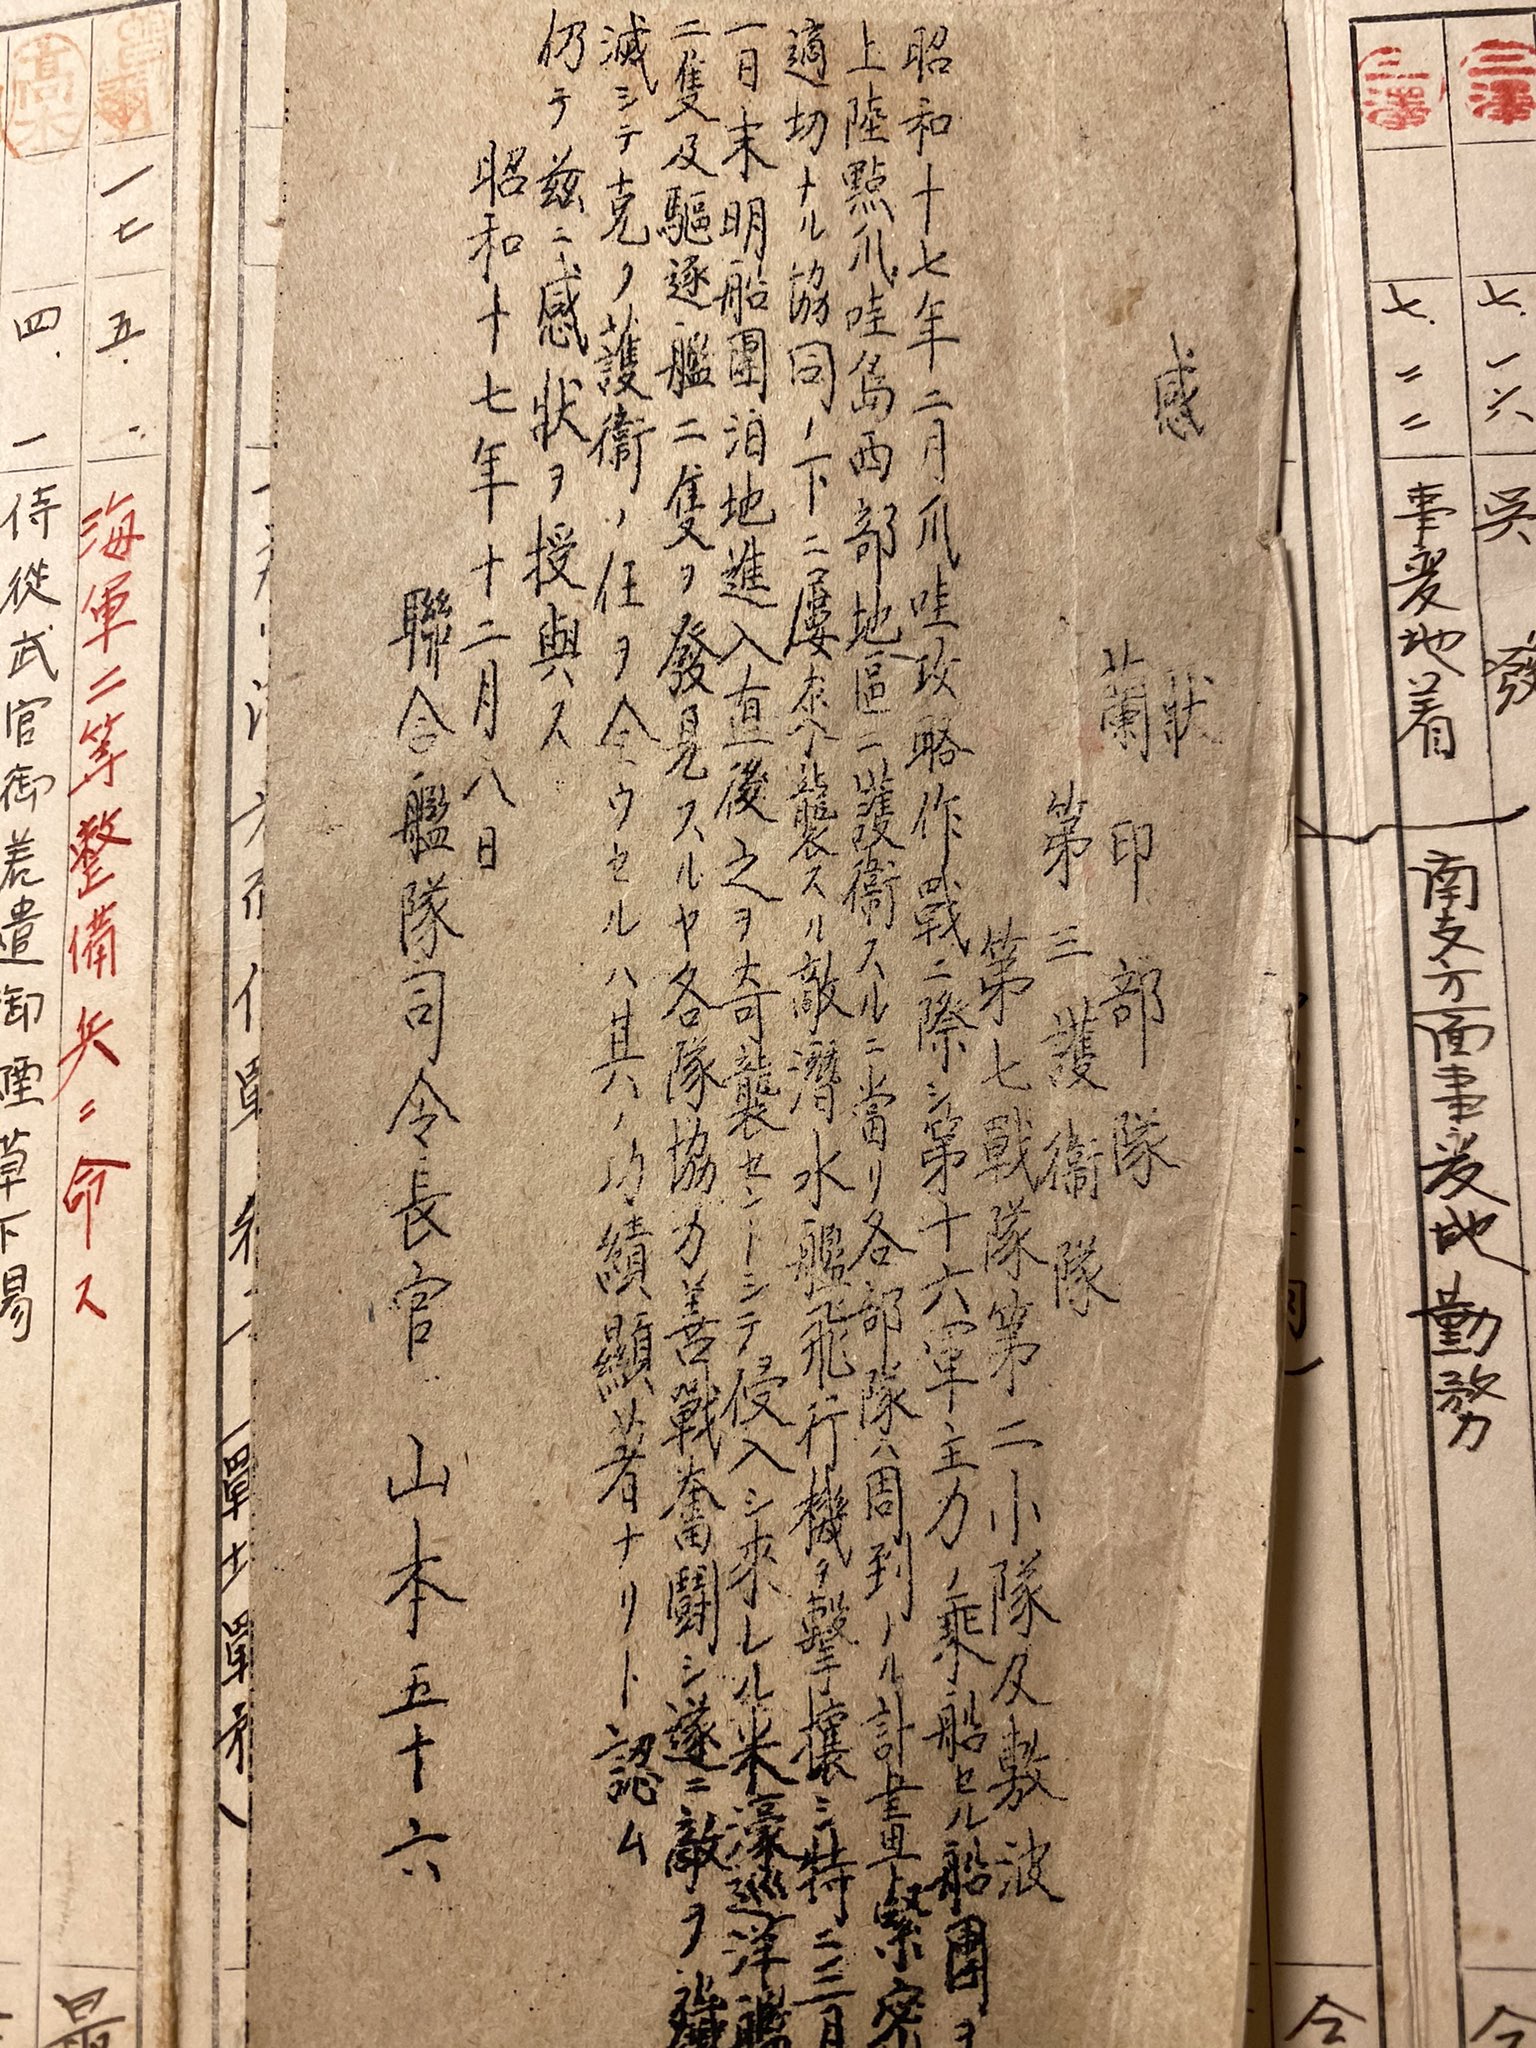 三澤
七、一六 呉 發
三澤
七、二二 事変地着 南支方面事変地勤務
感 狀
蘭印部隊
第三護衛隊
第七戰隊第二小隊及敷波
昭和十七年二月爪哇攻略作戰ニ際シ第十六軍主力ノ乘船セル船團ヲ
上陸點爪哇島西部地區ニ護衛スルニ當リ各部隊ハ周到ナル計畫ト緊密
適切ナル協同ノ下ニ屢々來襲スル敵潛水艦飛行機ヲ擊攘シ特ニ三月
一日未明船團泊地進入直後之ヲ奇襲セントシテ侵入シ來レル米濠巡洋艦
二隻及驅逐艦二隻ヲ發見スルヤ各隊協力善戰奮鬪シ遂ニ敵ヲ殲
滅シテ克ク護衛ノ任ヲ全ウセルハ其ノ功績顯著ナリト認ム
仍テ茲ニ感狀ヲ授與ス
昭和十七年十二月八日
聯合艦隊司令長官 山本五十六
一七 五、一 海軍二等整備兵ニ命ス
高木
四、一 侍從武官御差遣御煙草下賜